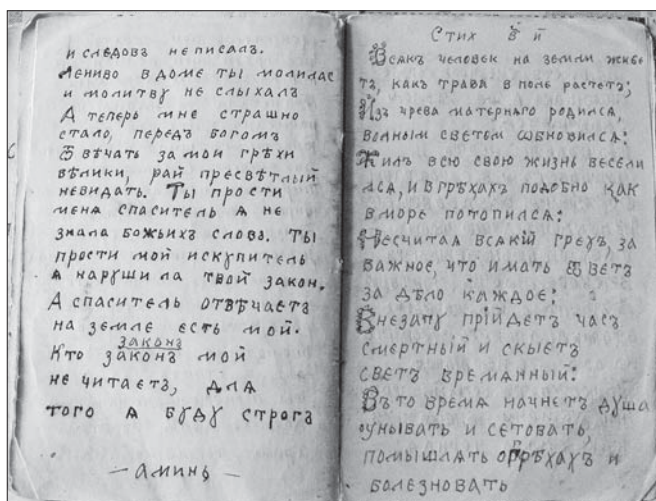 и следовъ не писалъ.
Лениво в доме ты молилас
и молитву не слыхалъ
А теперь мне страшно
стало, передъ Богомъ
Ѿвѣчать за мои грѣхи
вѣлики, рай пресвѣтлый
невидать. Ты прости
меня спаситель ѧ не
знала божьихъ словъ. Ты
прости мой искупитель
ѧ нарушила твой закон.
А спаситель отвѣчаетъ
на земле есть мой.
законъ
Кто законъ мой
не читаетъ, длѧ
того ѧ буду строгъ
— аминь —
Стих й
Всѧкъ человек на земли живе
тъ, какъ трава в поле растетъ;
Изъ чрева матернѧго родилсѧ,
волным светем ѡбновилсѧ:
Жилъ всю свою жизнь весели
лсѧ, и в грѣхахъ подобно как
в море потопилсѧ:
Несчитаѧ всѧкій грехъ, за
важное, что имать ѿветъ
за дѣло каждое:
Внезапу прійдетъ часъ
смертный и скыетъ
светъ времѧнный:
Въ то времѧ начнетъ душа
оунывать и сетовать,
помышлѧть о грѣхахъ и
болезновать